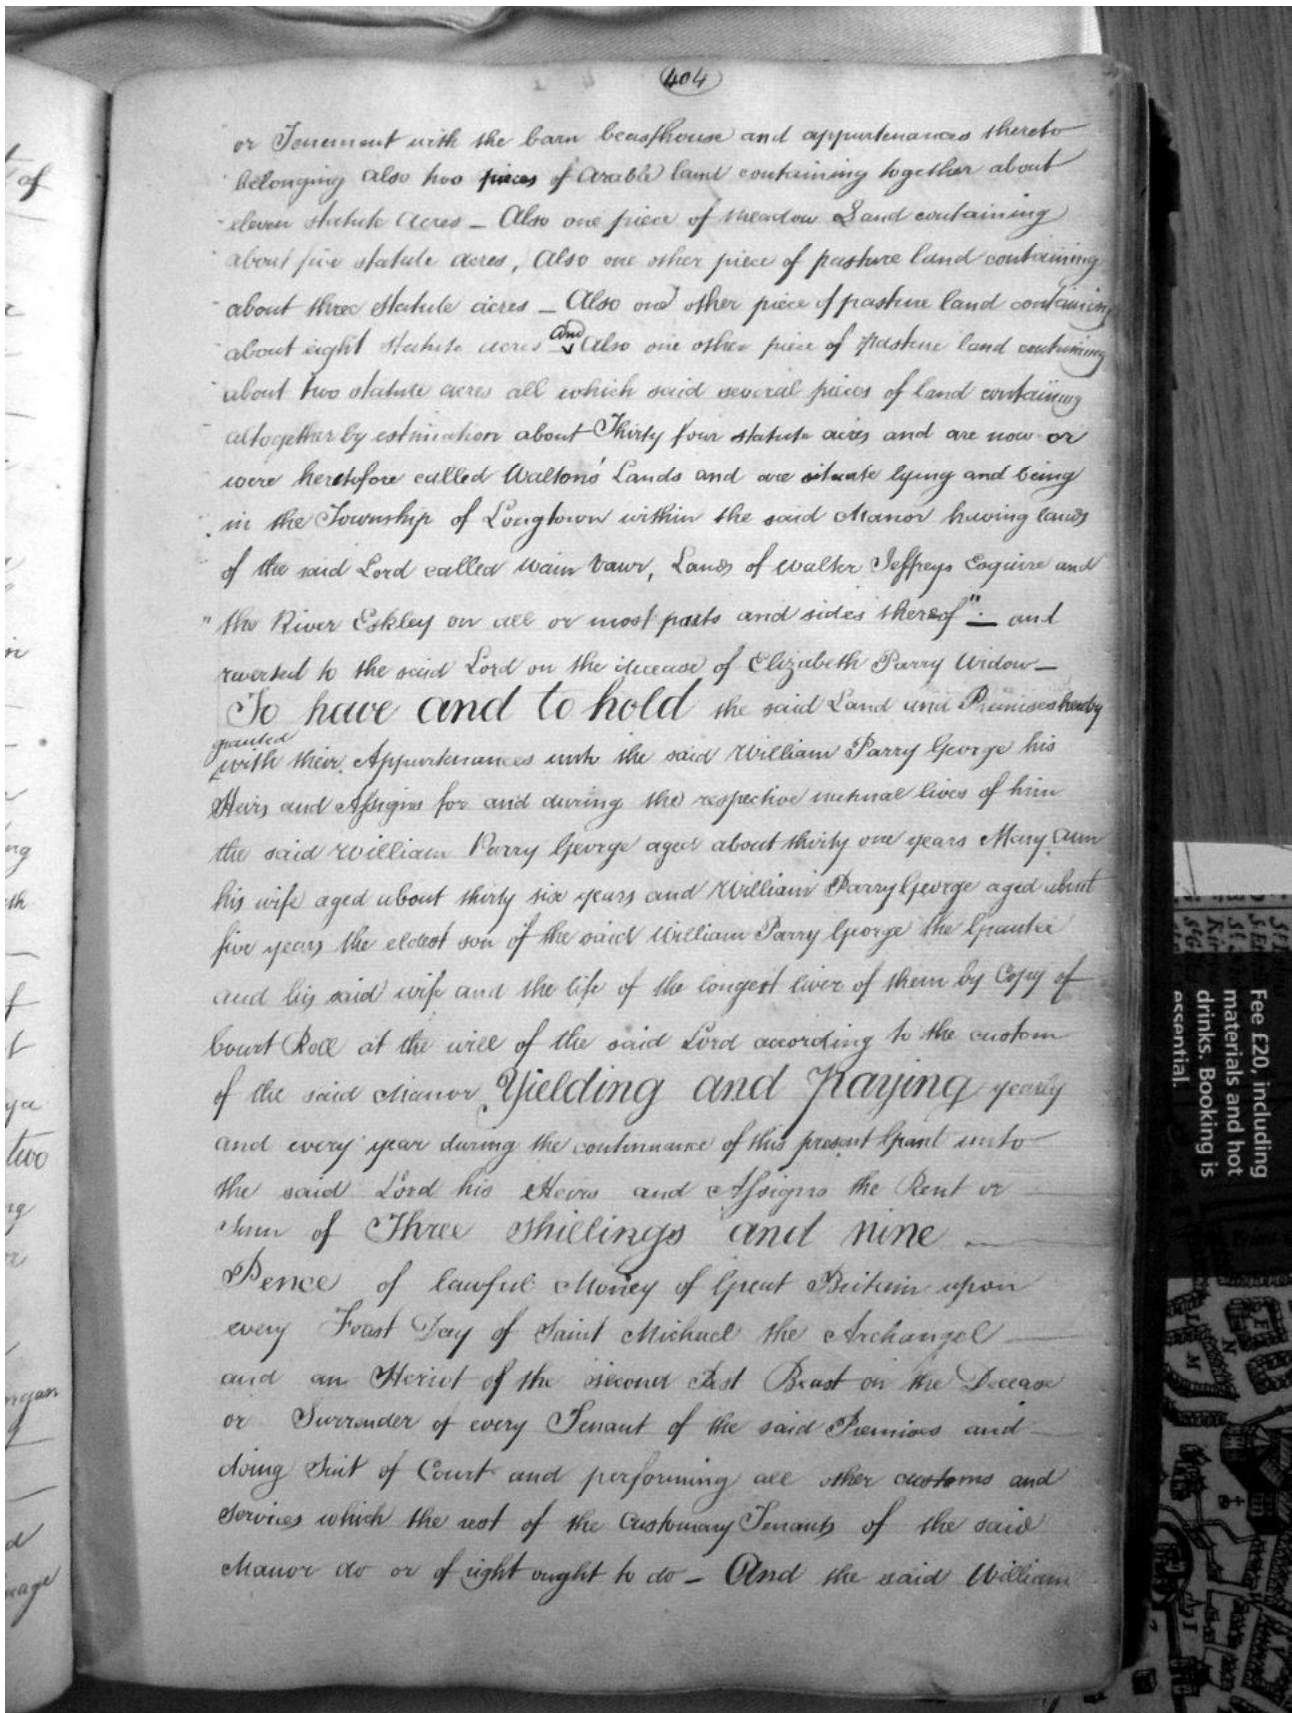 404
or Tenement with the barn beasthouse and appurtenances thereto
belonging also two pieces of Arable land containing together about
eleven statute Acres – Also one piece of Meadow Land containing
about five statute acres, Also one other piece of pasture land containing
about three statute acres – Also one other piece of pasture land containing
about eight statute acres and Also one other piece of pasture land containing
about two statute acres all which said several pieces of land containing
altogether by estimation about Thirty four statute acres and are now or
were heretofore called Waltons' Lands and are situate lying and being
in the Township of Longtown within the said Manor having lands
of the said Lord called Wain Vawr, Lands of Walter Jeffreys Esquire and
" the River Eskley on all or most parts and sides thereof": – and
reverted to the said Lord on the decease of Elizabeth Parry Widow –
To have and to hold the said Land and Premises hereby
granted
with their Appurtenances unto the said William Parry George his
Heirs and Assigns for and during the respective natural lives of him
the said William Parry George aged about thirty one years Mary Ann
his wife aged about thirty six years and William Parry George aged about
five years the eldest son of the said William Parry George the Grantee
and his said wife and the life of the longest liver of them by Copy of
Court Roll at the will of the said Lord according to the custom
of the said Manor Yielding and Paying yearly
and every year during the continuance of this present Grant unto
the said Lord his Heirs and Assigns the Rent or
Sum of Three shillings and nine –
Pence of lawful Money of Great Britain upon
every Feast Day of Saint Michael the Archangel
and an Heriot of the second Best Beast on the Decease
or Surrender of every Tenant of the said Premises and
doing Suit of Court and performing all other customs and
Services which the rest of the Customary Tenants of the said
Manor do or of right ought to do – And the said William
of
two
Fee £20, including
materials and hot
drinks. Booking is
essential.